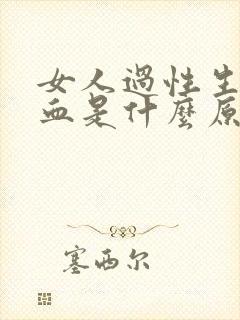 女人過性生
血是什麼原
塞西尔